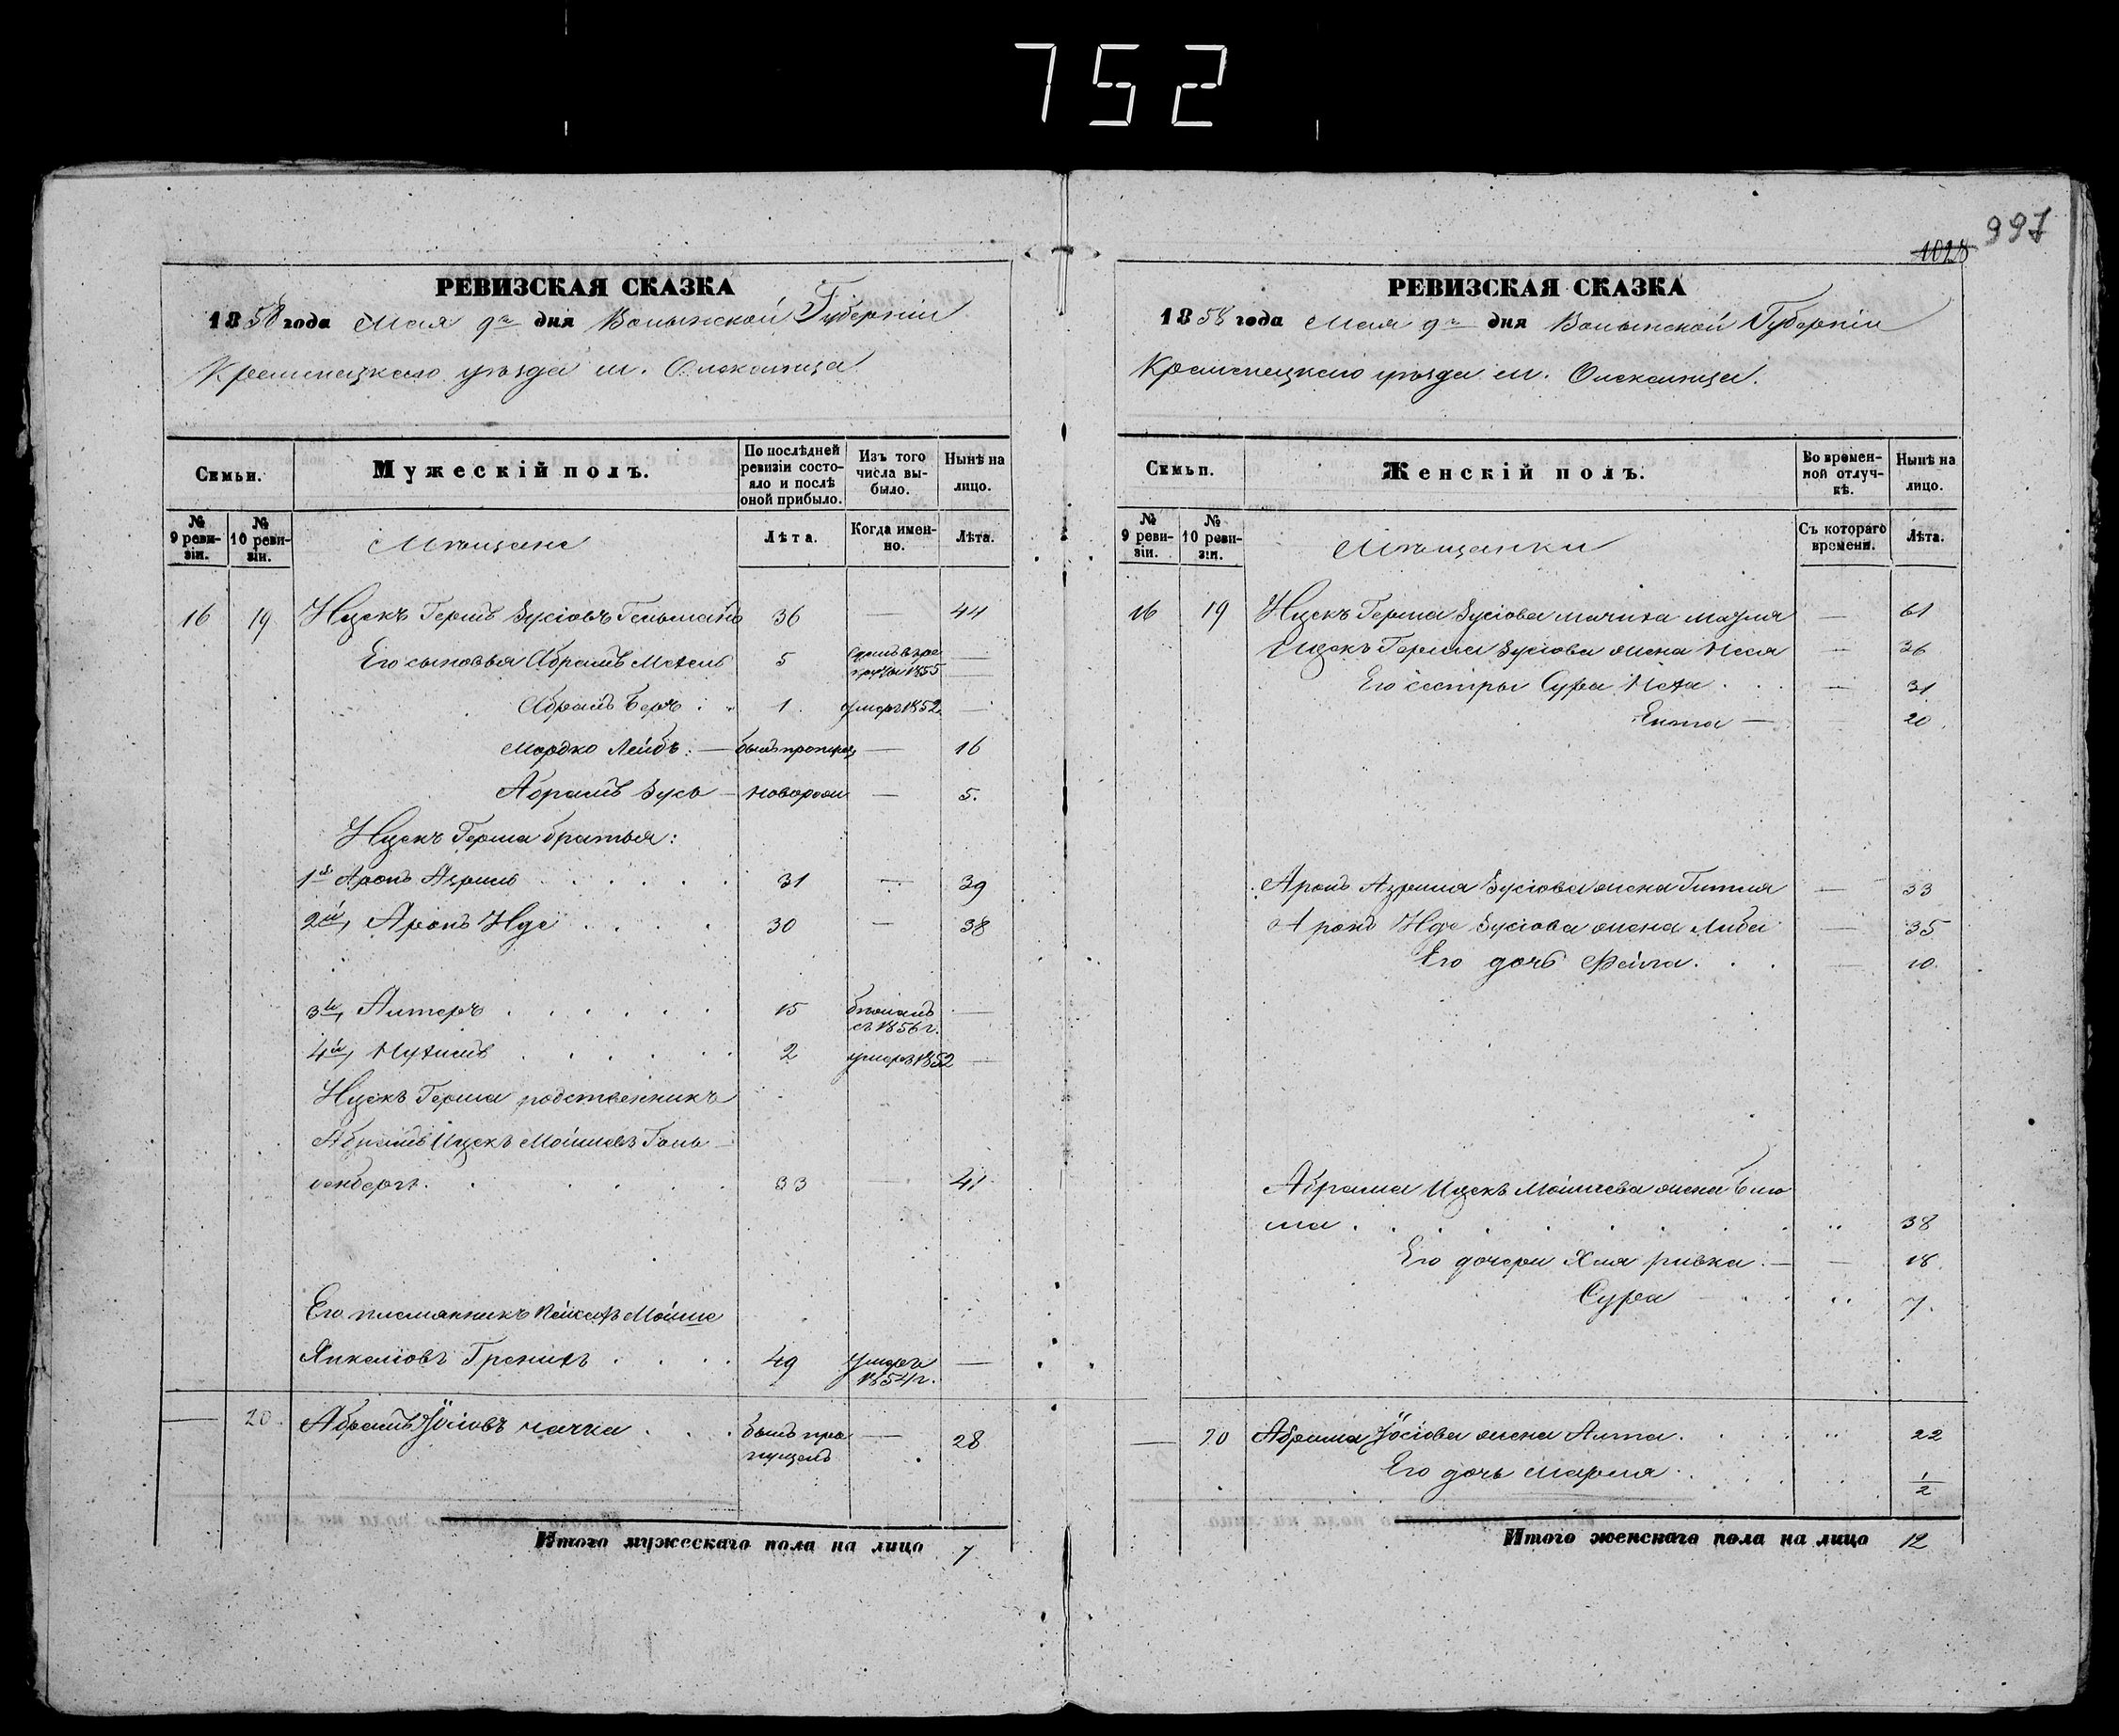 752
997
1028
РЕВИЗСКАЯ СКАЗКА
1858 года Мая 9го дня Волынской Губерніи
Кременецкаго уѣзда м. Олексинца
Семьи.
Мужескій полъ.
По послѣдней ревизіи состояло и послѣ оной прибыло.
Изъ того числа выбыло.
Нынѣ на лицо.
№ 9 ревизіи.
№ 10 ревизіи.
Мѣщане
Лѣта.
Когда именно.
Лѣта.
16 19 Ицекъ Гершъ Зусіовъ Гельманъ 36 — 44
Его сыновья Абрамъ 5 1855 —
Абрамъ Беръ 1 умеръ 1852 —
Мордко Лейбъ — былъ пропущ — 16
Абрамъ Зусь — новорож — 5.
Ицекъ Герша братья:
1й Аронъ Азриль 31 — 39
2й, Аронъ Иде 30 — 38
3й, Алтеръ 15 бѣжалъ съ 1856 г. —
4й, Нухимъ 2 умеръ 1852 —
Ицекъ Герша родственникъ
Абрамъ Ицекъ МошковъГоль
денбергъ 33 — 41
Его племянникъ Пейсахъ Мойше
Янкеліовъ 49 умеръ 1854 г. —
— 20 Абрамъ Іосіовъ былъ пропущенъ — 28
Итого мужескаго пола на лицо 7
РЕВИЗСКАЯ СКАЗКА
1858 года Мая 9го дня Волынской Губерніи
Кременецкаго уѣзда м. Олексинца.
Семьи.
Женскій полъ.
Во временной отлучкѣ.
Нынѣ на лицо.
№ 9 ревизіи.
№ 10 ревизіи.
Мѣщанки
Съ котораго времени.
Лѣта.
16 19 Ицекъ Герша Зусіова мачиха Мазля — 61
Ицекъ Герша Зусіова жена Неся — 36
Его сестры Сура Неха — 31
Ента — 20
Аронъ Азриля Зусіова жена Гитля — 33
Аронъ Иде Зусіова жена Либа — 35
Его дочь Фейга — 10
Абрама Ицекъ Мошкова жена Блю
ма 38
Его дочери Хая Ривка — 18
Сура 7.
— 20 Абрама Іосіова жена Алта 22
Его дочь Маріея 1/2
Итого женскаго пола на лицо 12